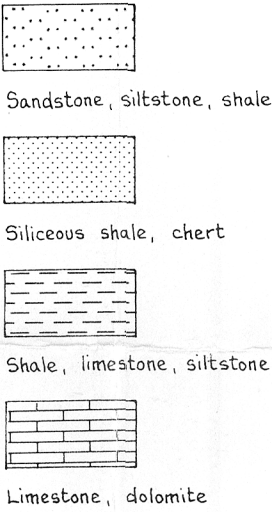 Sandstone, siltstone, shale
Siliceous shale, chert
Shale, limestone, siltstone
Limestone, dolomite